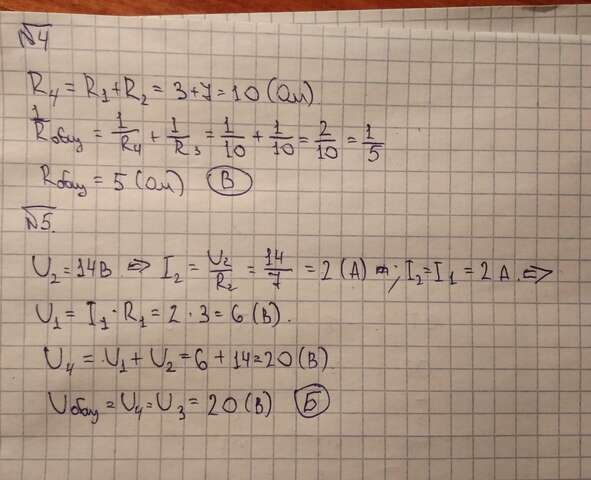 №4
R₄ = R₁ + R₂ = 3 + 7 = 10 (Ом)
1/Rобщ = 1/R₄ + 1/R₃ = 1/10 + 1/10 = 2/10 = 1/5
Rобщ = 5 (Ом) В
№5.
U₂ = 14В => I₂ = U₂/R₂ = 14/7 = 2 (А) ; I₂ = I₁ = 2 А. =>
U₁ = I₁ · R₁ = 2 · 3 = 6 (В).
U₄ = U₁ + U₂ = 6 + 14 = 20 (В)
Uобщ = U₄ = U₃ = 20 (В) Б